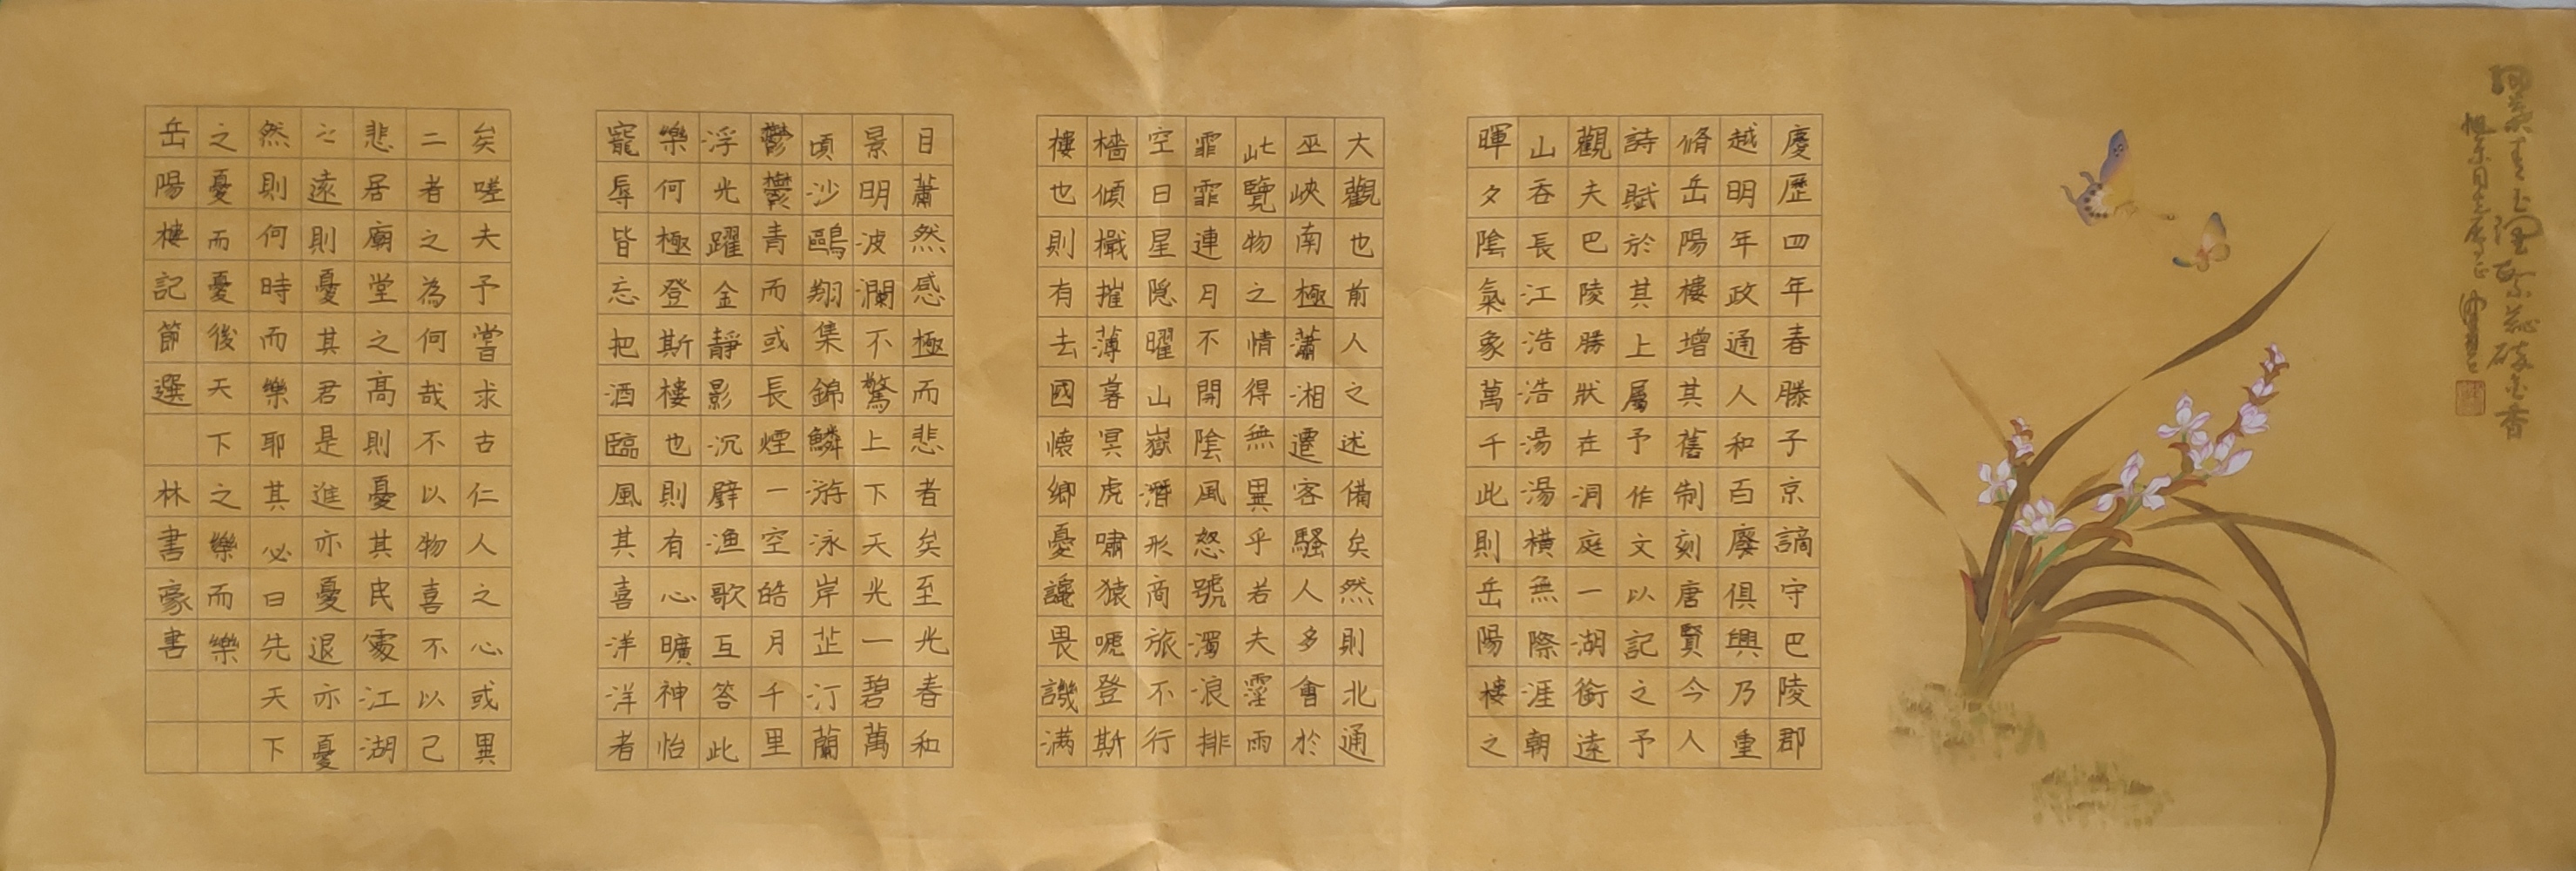 慶歷四年春滕子京謫守巴陵郡
越明年政通人和百廢俱興乃重
脩岳陽樓增其舊制刻唐賢今人
詩賦於其上屬予作文以記之予
觀夫巴陵勝狀在洞庭一湖銜遠
山吞長江浩浩湯湯橫無際涯朝
暉夕陰氣象萬千此則岳陽樓之
大觀也前人之述備矣然則北通
巫峽南極瀟湘遷客騷人多會於
此覽物之情得無異乎若夫霪雨
霏霏連月不開陰風怒號濁浪排
空日星隱曜山嶽潛形商旅不行
檣傾檝摧薄暮冥虎嘯猿啼登斯
樓也則有去國懷鄉憂讒畏譏滿
目蕭然感極而悲者矣至光春和
景明波瀾不驚上下天光一碧萬
頃沙鷗翔集錦鱗游泳岸芷汀蘭
鬱鬱青而或長煙一空皓月千里
浮光躍金靜影沉壁漁歌互答此
樂何極登斯樓也則有心曠神怡
寵辱皆忘把酒臨風其喜洋洋者
矣嗟夫予嘗求古仁人之心或異
二者之為何哉不以物喜不以己
悲居廟堂之高則憂其民處江湖
之遠則憂其君是進亦憂退亦憂
然則何時而樂耶其必曰先天下
之憂而憂後天下之樂而樂
岳陽樓記節選 林書豪書